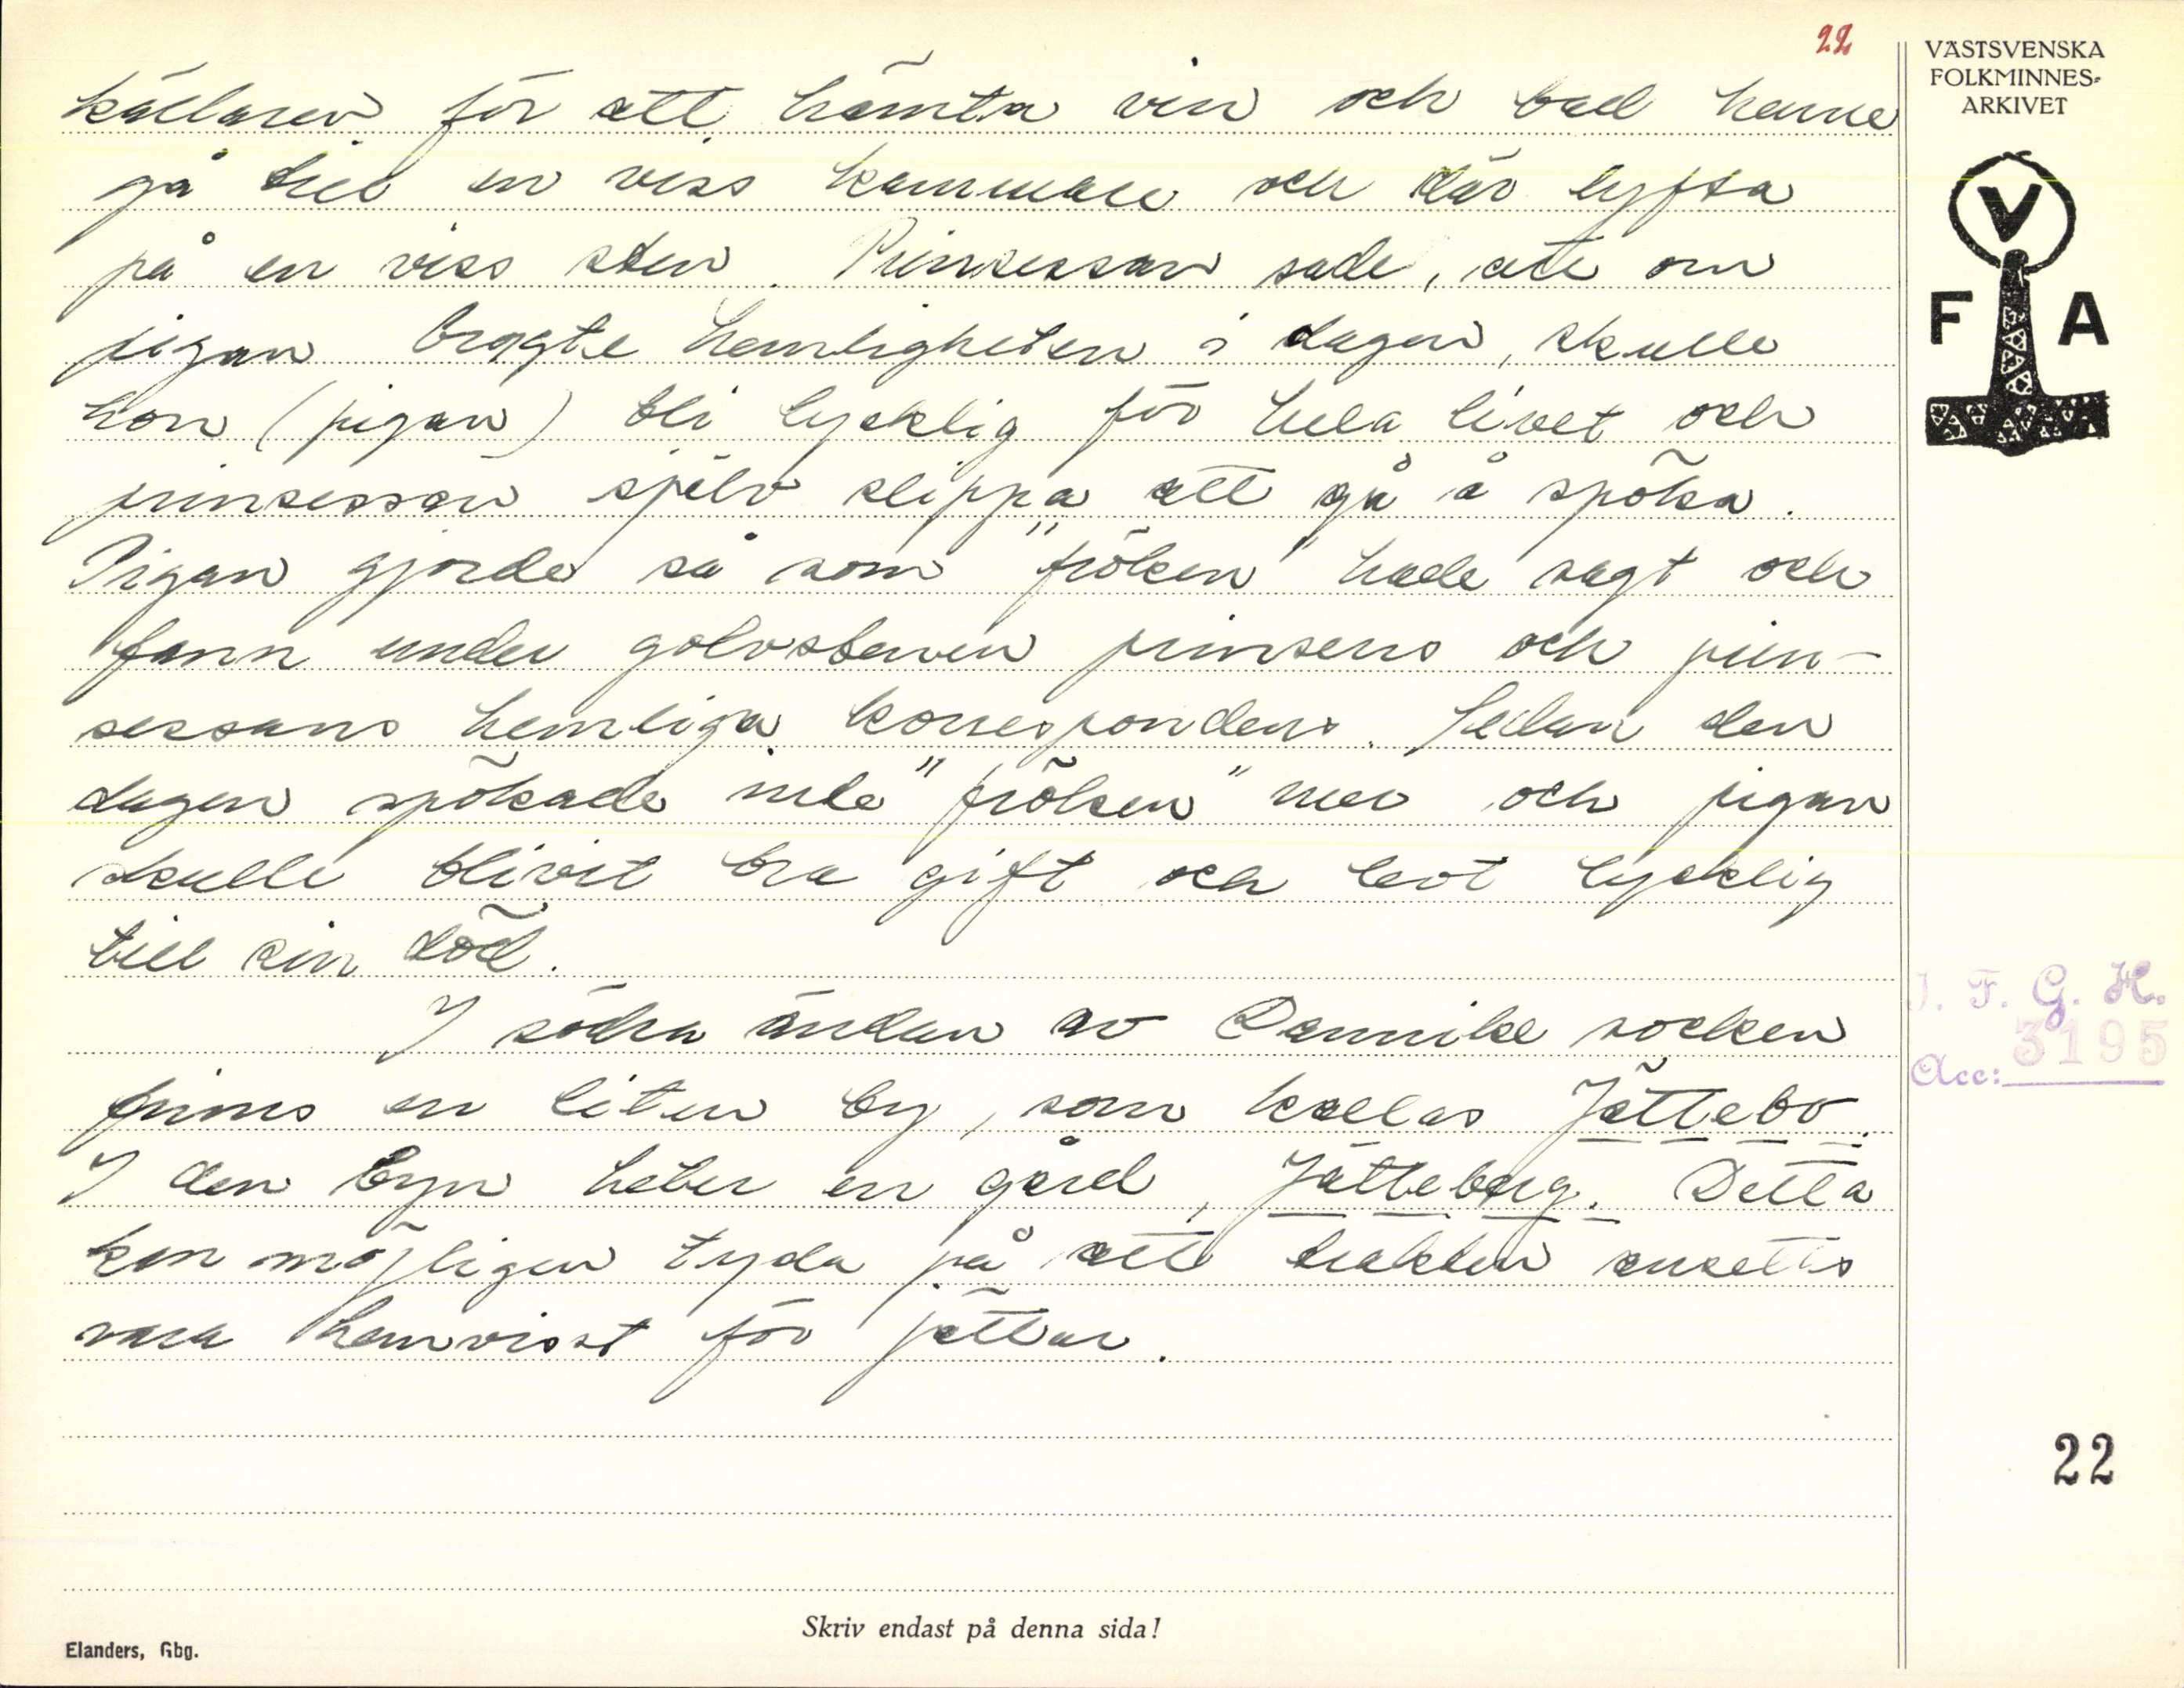 22
VÄSTSVENSKA
FOLKMINNES-
ARKIVET
V
F A
källaren för att hämta vin och bad henne
gå till en viss kammare och där lyfta
på en viss sten. Prinsessan sade, att om
pigan bragte hemligheten i dagen, skulle
hon (pigan) bli lycklig för hela livet och
prinsessan själv slippa att gå å spöka.
Pigan gjorde så som "fröken" hade sagt och
fann under golvstenen prinsens och prin-
sessans hemliga korrespondens. Sedan den
dagen spökade inte "fröken" mer och pigan
skulle blivit bra gift och levt lycklig
till sin död.
I södra ändan av Dannike socken
finns en liten by, som kallas Jättebo.
I den byn heter en gård, Jätteberg. Detta
kan möjligen tyda på att trakten ansetts
vara hemvisst för jättar.
I. F. G. H.
Acc: 3195
22
Skriv endast på denna sida!
Elanders, Gbg.